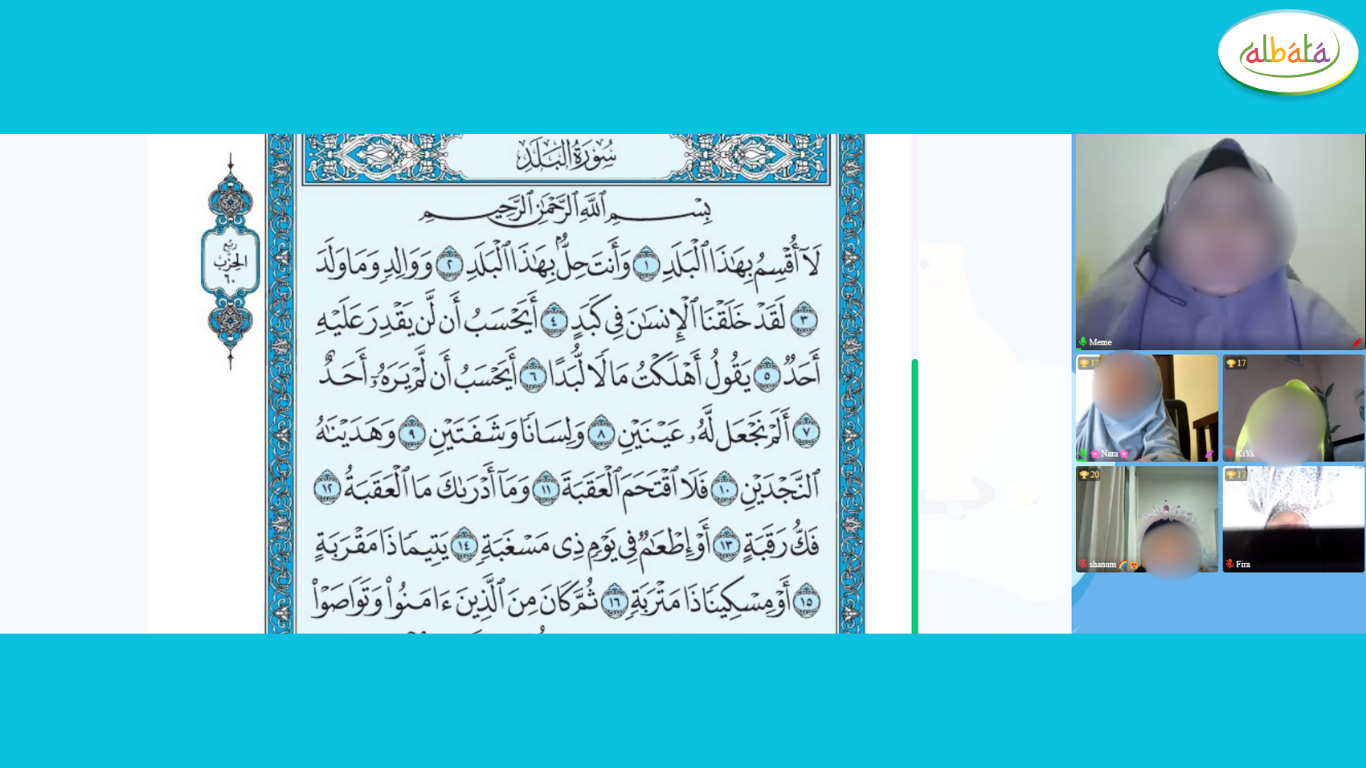 albata
سُورَةُ الْبَلَدِ
رُبْع
الحِزْب
٦٠
بِسْمِ ٱللَّهِ ٱلرَّحْمَٰنِ ٱلرَّحِيمِ
لَآ أُقْسِمُ بِهَٰذَا ٱلْبَلَدِ ١ وَأَنتَ حِلٌّۢ بِهَٰذَا ٱلْبَلَدِ ٢ وَوَالِدٍ وَمَا وَلَدَ
٣ لَقَدْ خَلَقْنَا ٱلْإِنسَٰنَ فِى كَبَدٍ ٤ أَيَحْسَبُ أَن لَّن يَقْدِرَ عَلَيْهِ
أَحَدٌ ٥ يَقُولُ أَهْلَكْتُ مَالًا لُّبَدًا ٦ أَيَحْسَبُ أَن لَّمْ يَرَهُۥٓ أَحَدٌ
٧ أَلَمْ نَجْعَل لَّهُۥ عَيْنَيْنِ ٨ وَلِسَانًا وَشَفَتَيْنِ ٩ وَهَدَيْنَٰهُ
ٱلنَّجْدَيْنِ ١٠ فَلَا ٱقْتَحَمَ ٱلْعَقَبَةَ ١١ وَمَآ أَدْرَىٰكَ مَا ٱلْعَقَبَةُ ١٢
فَكُّ رَقَبَةٍ ١٣ أَوْ إِطْعَٰمٌ فِى يَوْمٍ ذِى مَسْغَبَةٍ ١٤ يَتِيمًا ذَا مَقْرَبَةٍ
١٥ أَوْ مِسْكِينًا ذَا مَتْرَبَةٍ ١٦ ثُمَّ كَانَ مِنَ ٱلَّذِينَ ءَامَنُوا۟ وَتَوَاصَوْا۟
Meme
17
Nara
17
KiYa
20
shanum
17
Fira